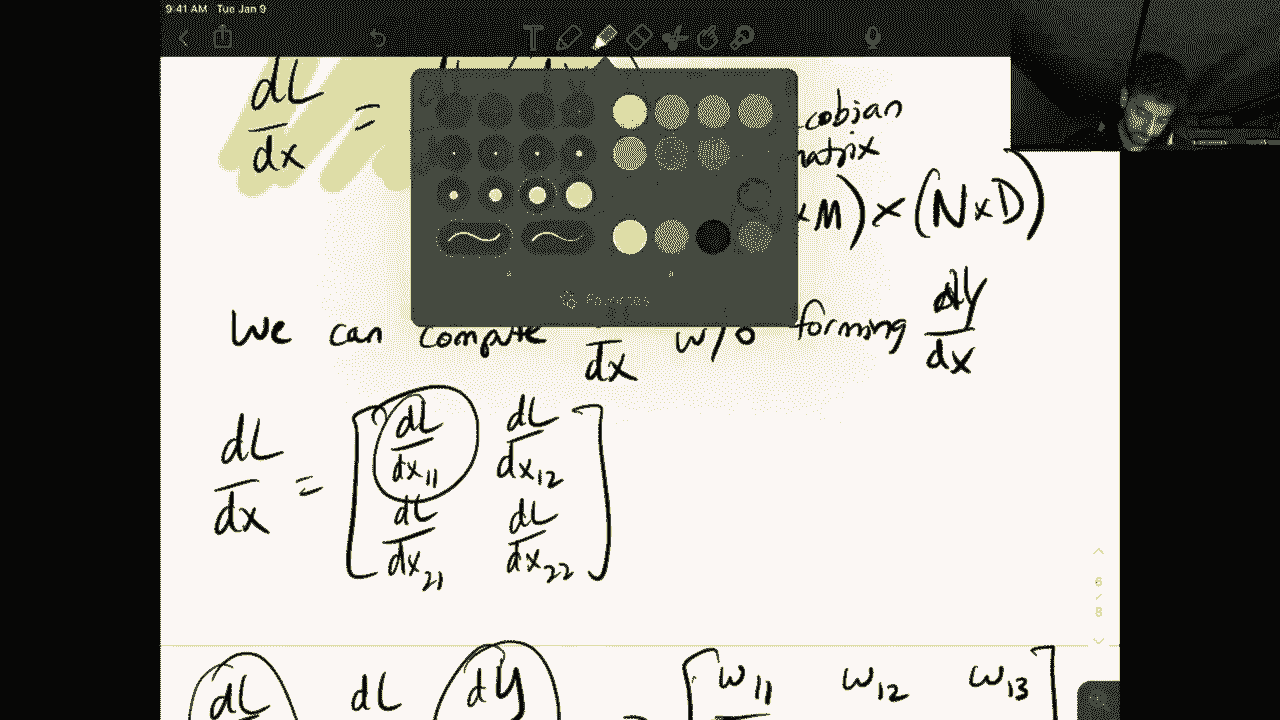 9:41 AM Tue Jan 9
dL/dx =
cobian
matrix
×M) × (N×D)
We can compute /dx w/o forming dy/dx
Favorites
dL/dx = [ dL/dx₁₁ dL/dx₁₂
dL/dx₂₁ dL/dx₂₂ ]
6
/
8
dL dL dy = [ w₁₁ w₁₂ w₁₃ ]